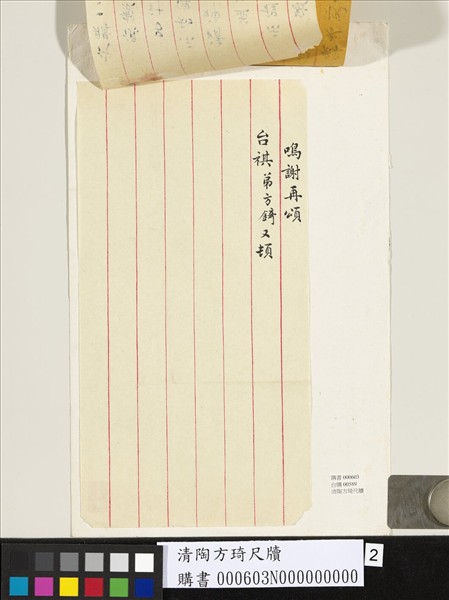 鳴謝再頌
台祺弟方錡又頓
購書 000603
台購 00389
清陶方琦尺牘
清陶方琦尺牘
購書 000603N000000000
2